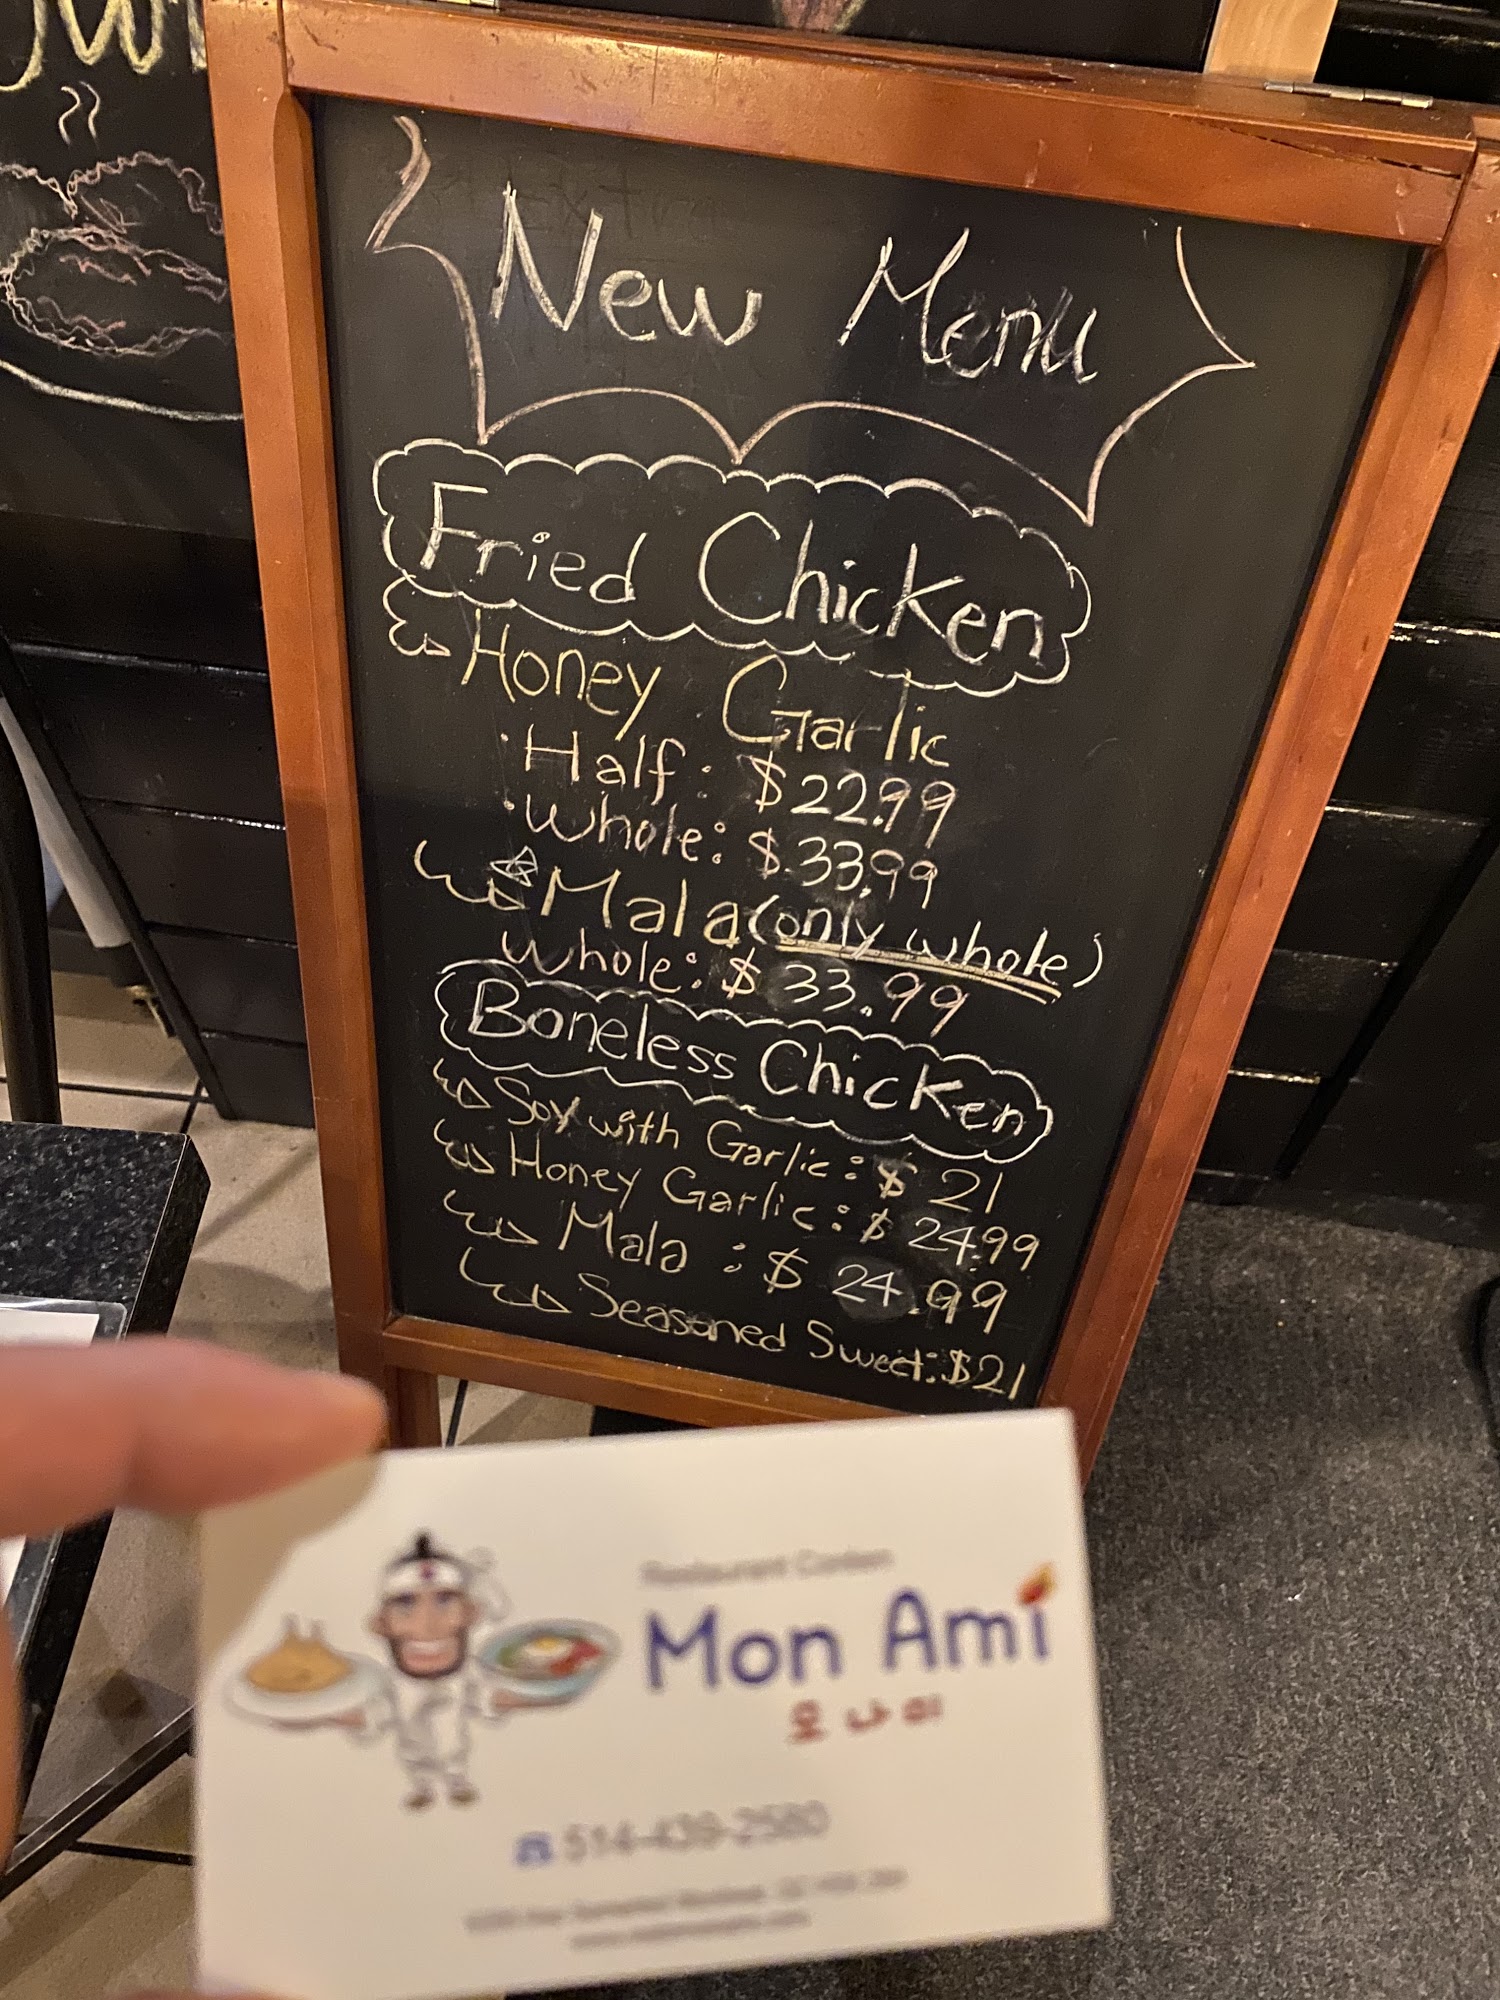 New Menu
Fried Chicken
Honey Garlic
·Half: $22.99
·Whole: $33.99
Mala (only whole)
Whole: $33.99
Boneless Chicken
Soy with Garlic: $21
Honey Garlic: $24.99
Mala : $24.99
Seasoned Sweet: $21
Restaurant Coréen
Mon Ami
모나미
514-439-2580